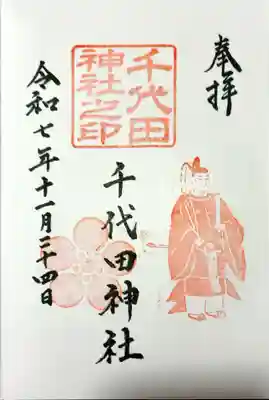 奉拝
千代田
神社之印
千代田神社
令和七年十一月二十四日